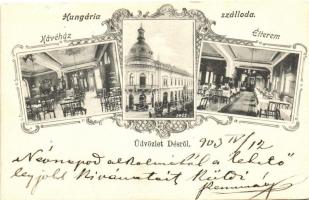 Hungária szálloda.
Kávéház Étterem
Üdvözlet Désről. 903 IV/12
Névnapod alkalmából a lehető
legjobb Kivánatait Küldi